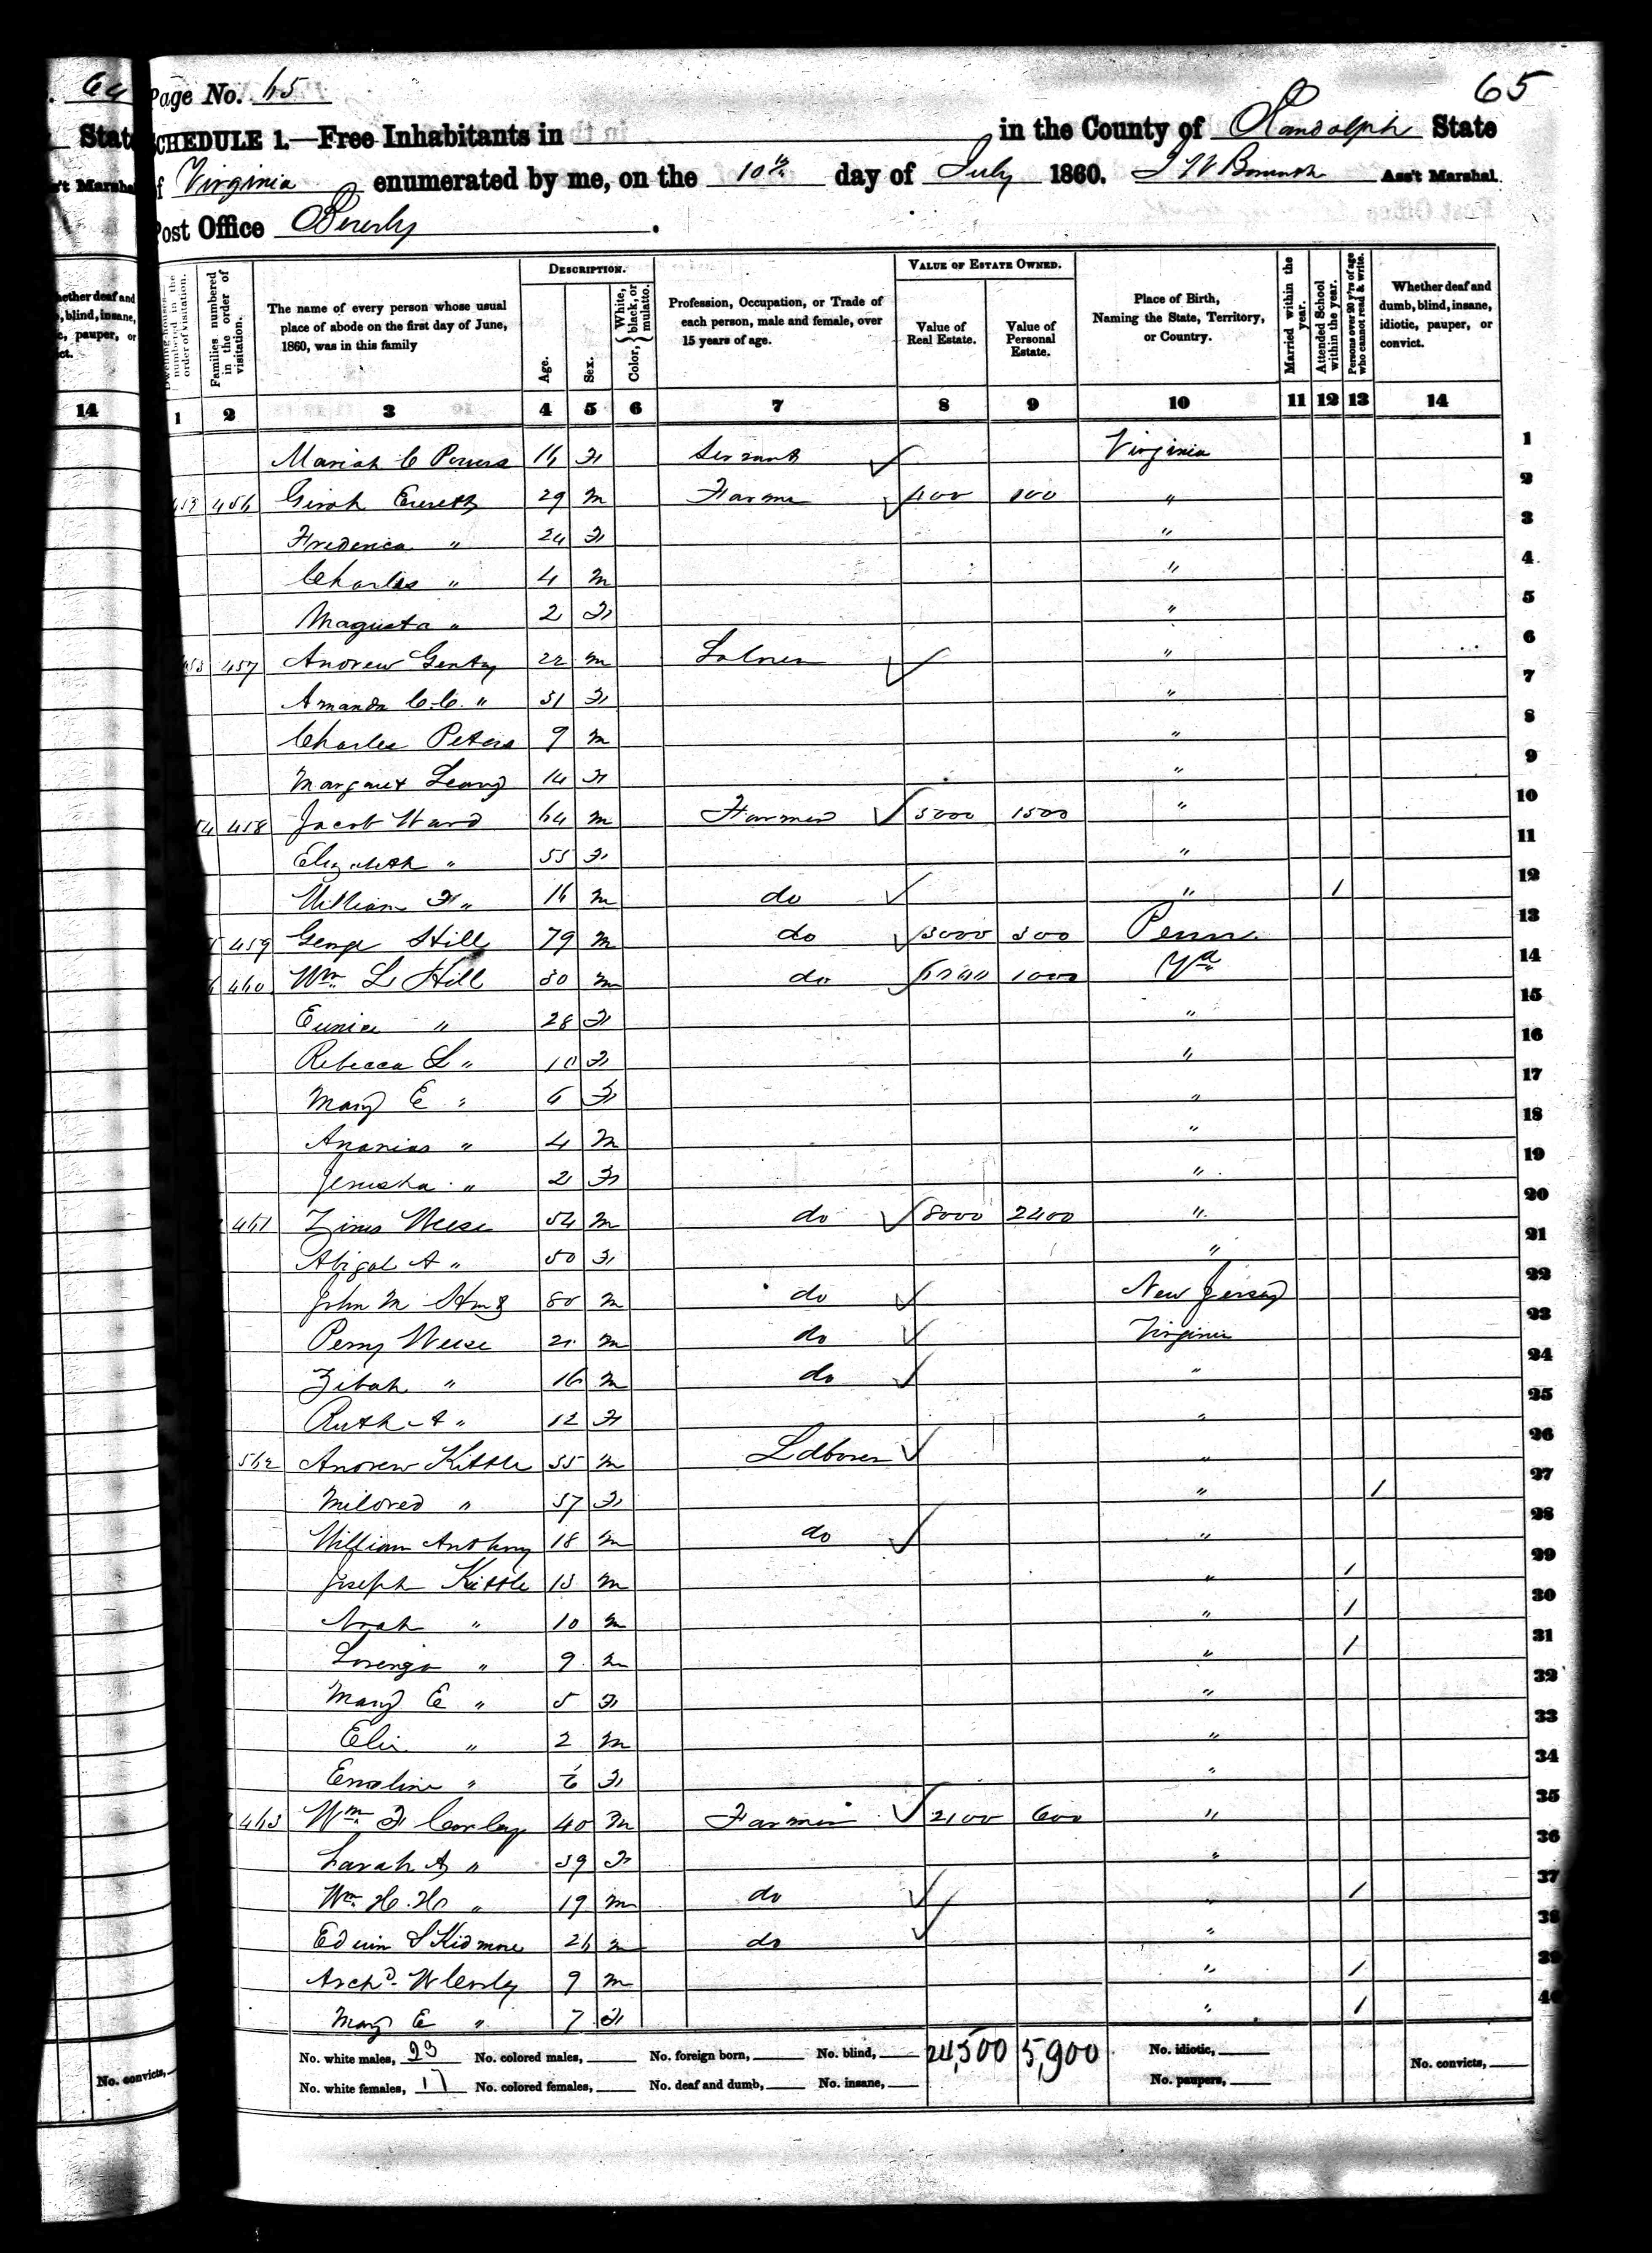 64
State
Ass't Marshal
whether deaf and
dumb, blind, insane,
idiotic, pauper, or
convict.
14
No. convicts,
65
Page No. 65
SCHEDULE 1.—Free Inhabitants in in the County of Randolph State
of Virginia enumerated by me, on the 10th day of July 1860. Ass't Marshal.
Post Office Beverly.
Dwelling-houses—numbered in the order of visitation.
Families numbered in the order of visitation.
The name of every person whose usual place of abode on the first day of June, 1860, was in this family
DESCRIPTION.
Age.
Sex.
Color, White, black, or mulatto.
Profession, Occupation, or Trade of each person, male and female, over 15 years of age.
VALUE OF ESTATE OWNED.
Value of Real Estate.
Value of Personal Estate.
Place of Birth, Naming the State, Territory, or Country.
Married within the year.
Attended School within the year.
Persons over 20 y'rs of age who cannot read & write.
Whether deaf and dumb, blind, insane, idiotic, pauper, or convict.
1 2 3 4 5 6 7 8 9 10 11 12 13 14
Mariah C Powers 16 F Servant Virginia 1
456 29 m Farmer 400 100 " 2
Frederica " 24 F " 3
Charles " 4 m " 4
" 2 F " 5
457 Andrew 22 m " 6
Amanda C. C. " 31 F " 7
Charles Peters 9 m " 8
Margaret 14 F " 9
458 Jacob Ward 64 m Farmer 5000 1500 " 10
Elizabeth " 55 F " 11
William F " 16 m do " 1 12
459 George Hill 79 m do 3000 300 Penn. 13
460 Wm L Hill 30 m do 6000 1000 Va 14
Eunice " 28 F " 15
Rebecca L " 10 F " 16
Mary E " 6 F " 17
Ananias " 4 m " 18
Jerusha " 2 F " 19
461 Weese 54 m do 8000 2400 " 20
Abigal A " 50 F " 21
John M 80 m do New Jersey 22
Perry Weese 21 m do Virginia 23
Zibah " 16 m do " 24
Ruth A " 12 F " 25
562 Andrew Kittle 35 m Laborer " 26
Mildred " 37 F " 1 27
William Anthony 18 m do " 28
Joseph Kittle 13 m " 1 29
Noah " 10 m " 1 30
Lorenzo " 9 m " 1 31
Mary E " 5 F " 32
Eli " 2 m " 33
Emaline " F " 34
463 Wm F Corley 40 m Farmer 2100 600 " 35
Sarah A " 39 F " 36
Wm H. H " 19 m do " 1 37
Edwin Skidmore 26 m do " 38
Archd. W Corley 9 m " 1 39
Mary E " 7 F " 1 40
No. white males, 23 No. colored males, No. foreign born, No. blind, 24,500 5,900 No. idiotic, No. convicts,
No. white females, 17 No. colored females, No. deaf and dumb, No. insane, No. paupers,